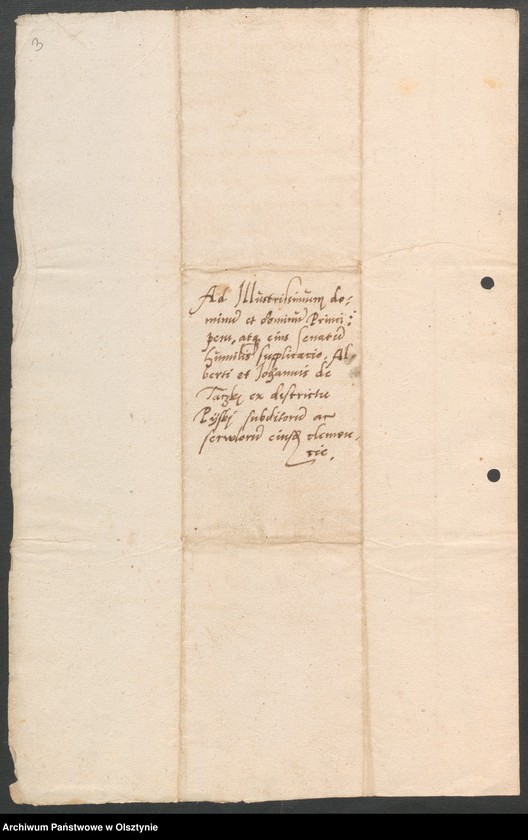 3
Ad Illustrissimum do-
minū et dominū Princi-
pem, atq; eius senatū
humilis supplicatio, Al-
berti et Johannis de
Taczki ex districtu
Ryski subditorū ac
serviorū eiusq; clemen-
tie.
Archiwum Państwowe w Olsztynie